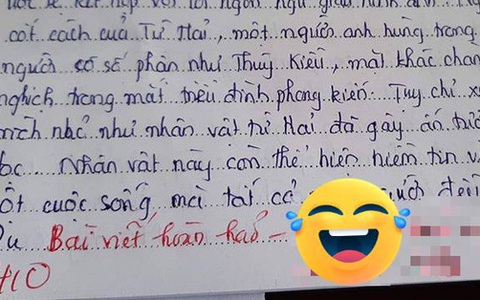 kết hợp với lời ngôn ngữ giàu hình ảnh
cốt cách của Từ Hải, một người anh hùng trong
người có số phận như Thúy Kiều, mặt khác chan
nghịch trong mắt triều đình phong kiến. Tuy chỉ
nhỏ như nhân vật từ Hải đã gây ấn
Nhân vật này còn thể hiện niềm tin
cuộc sống mà tất cả
Bài viết hoàn hảo -
10